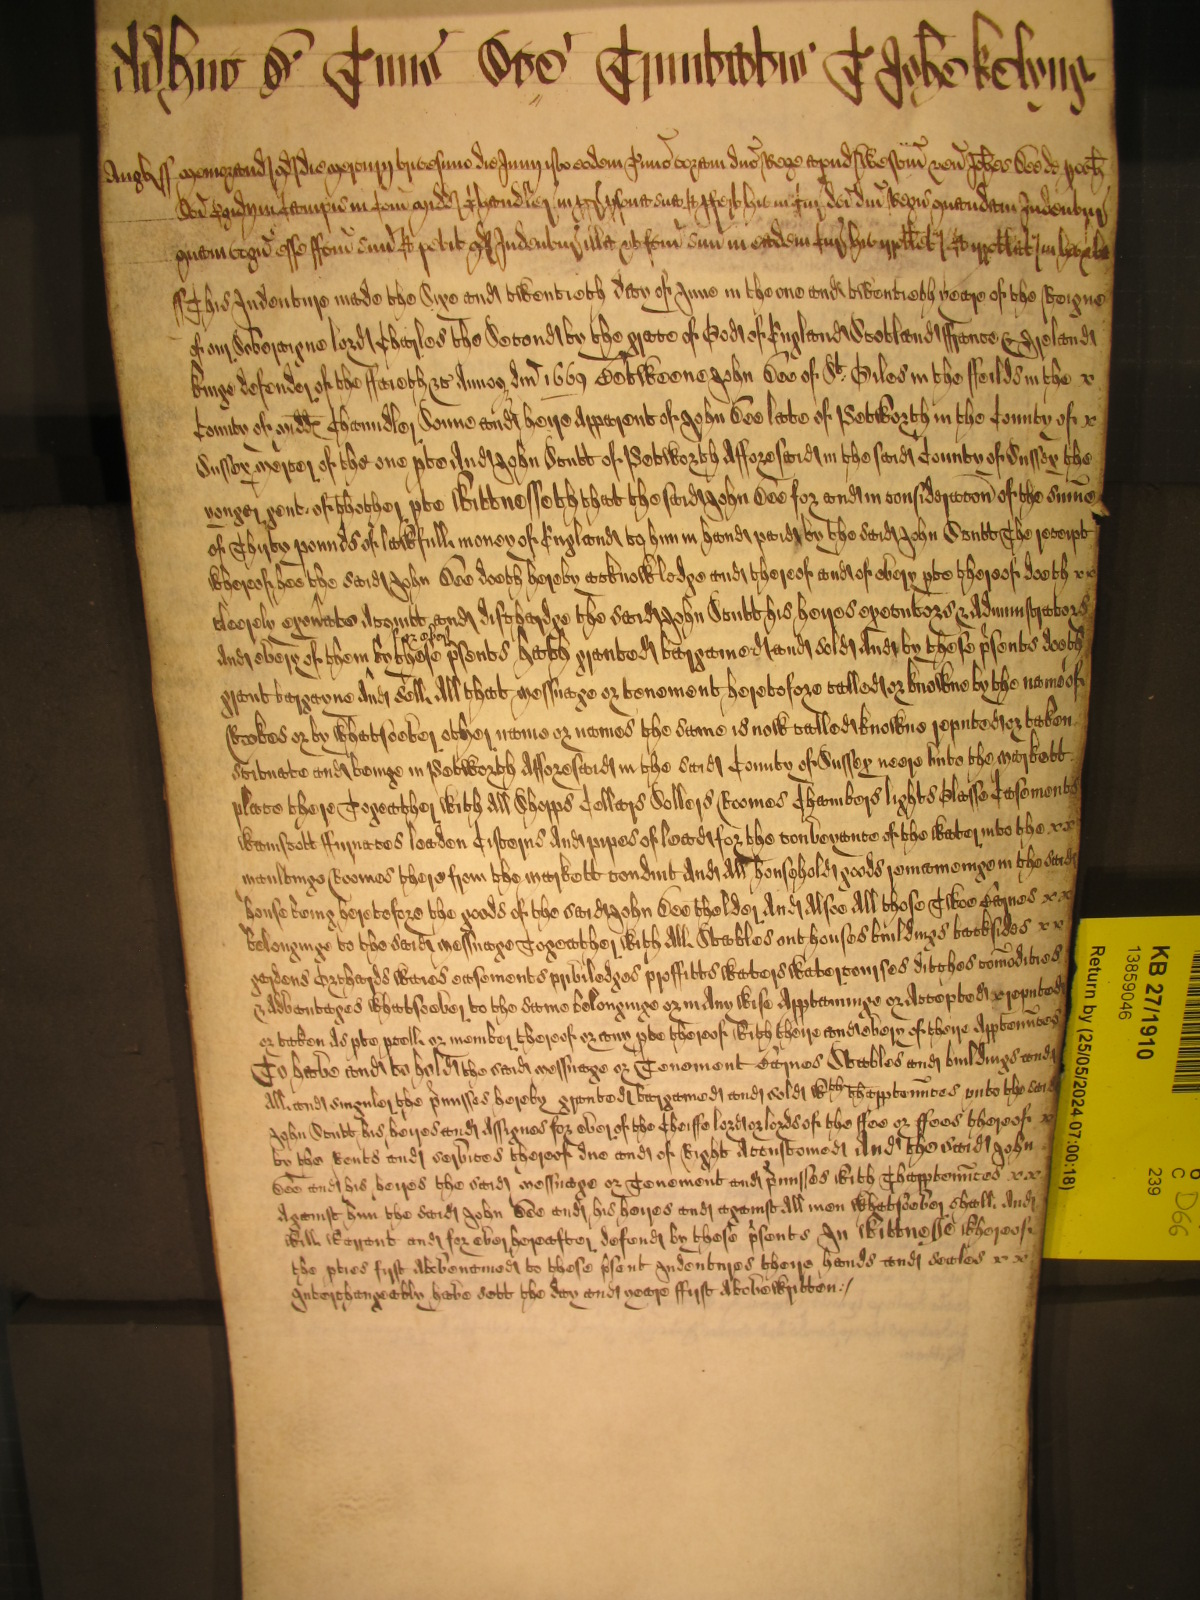 Adhuc de Termino Sce Trinitatis T Johe kelyng
Angl ss Memorand qd die mercurij tricesimo die Junij isto eodem Termino coram dno Rege apud Westm ven Johes See de poch
Sci Egidij in Campis in Com Midd Chandler in ppr psona sua & pfert hic in Cur dci dni Regis quandam Indentur
quam cogn esse ffcm suu & petit qd Indentur illa in eadem Cur hic irrotlet Et irrotlat in hec verba
ss This Indenture made the Sixe and twentieth day of June in the one and twentieth yeare of the Reigne
of our Soveraigne lord Charles the Second by the grace of God of England Scotland ffrance & Ireland
kinge defender of the ffaieth &c Annoq dni 1669 Betweene John See of St. Giles in the ffeilds in the x
County of Midd Chaundler Sonne and heire apparent of John See late of Petworth in the County of x
Sussex mercer of the one pte And John Stutt of Petworth Afforesaid in the said County of Sussex the
yonger gent. of thother pte Wittnesseth that the said John See for and in consideracon of the summe
of Thirty pounds of lawfull money of England to him in hand paid by the said John Stutt The receipt
whereof hee the said John See doeth hereby acknowledge and thereof and of every pte thereof doeth x x
cleerely exonerate Acquitt and discharge the said John Stutt his heires executors & Administrators
And every of them for ever by these psents Hath granted bargained and sold And by these psents doeth
grant bargaine And sell All that messuage or tenement heretofore called or knowne by the name of
Stokes or by whatsoever other name or names the same is now called knowne reputed or taken
scituate and beinge in Petworth Afforesaid in the said County of Sussex neere unto the markett
place there Togeather with All Shopps Cellars Sollers Roomes Chambers lights Glasse Casements
wainscott ffurnaces leaden Cisterns And pipes of lead for the conveyance of the water into the x x
maultinge Roomes there from the markett conduit And All household goods remaineinge in the said
house being heretofore the goods of the said John See the elder And Alsoe All those Twoe Barnes x x
belonginge to the said messuage Togeather with All Stables outhouses buildings backsides x x
gardens Orchards waies easements priviledges proffitts waters watercourses ditches comodities
& Advantages whatsoever to the same belonginge or in Any wise Apptaininge or Accepted reputed
or taken As pte pcell or member thereof or any pte thereof with theire and every of theire Apptennces
To have and to hold the said messuage or Tenement Barnes Stables and buildings and
All and singuler the pmisses hereby granted bargained and sold wth thapptennces unto the said
John Stutt his heires and Assignes for ever of the Cheiffe lord or lords of the ffee or ffees thereof x
by the Rents and services thereof due and of Right Accustomed And the said John
See and his heires the said messuage or Tenement and pmisses with Thapptennces x x
Against him the said John See and his heires and against All men whatsoever shall And
will warrant and for ever hereafter defend by these psents In Wittnesse whereof
the pties first Abovenamed to these psent Indentures theire hands and seales x x
Interchangeably have sett the day and yeare ffirst Abovewritten:/
KB 27/1910
13859046
Return by (25/05/2024 07:00:18)
239
C D66